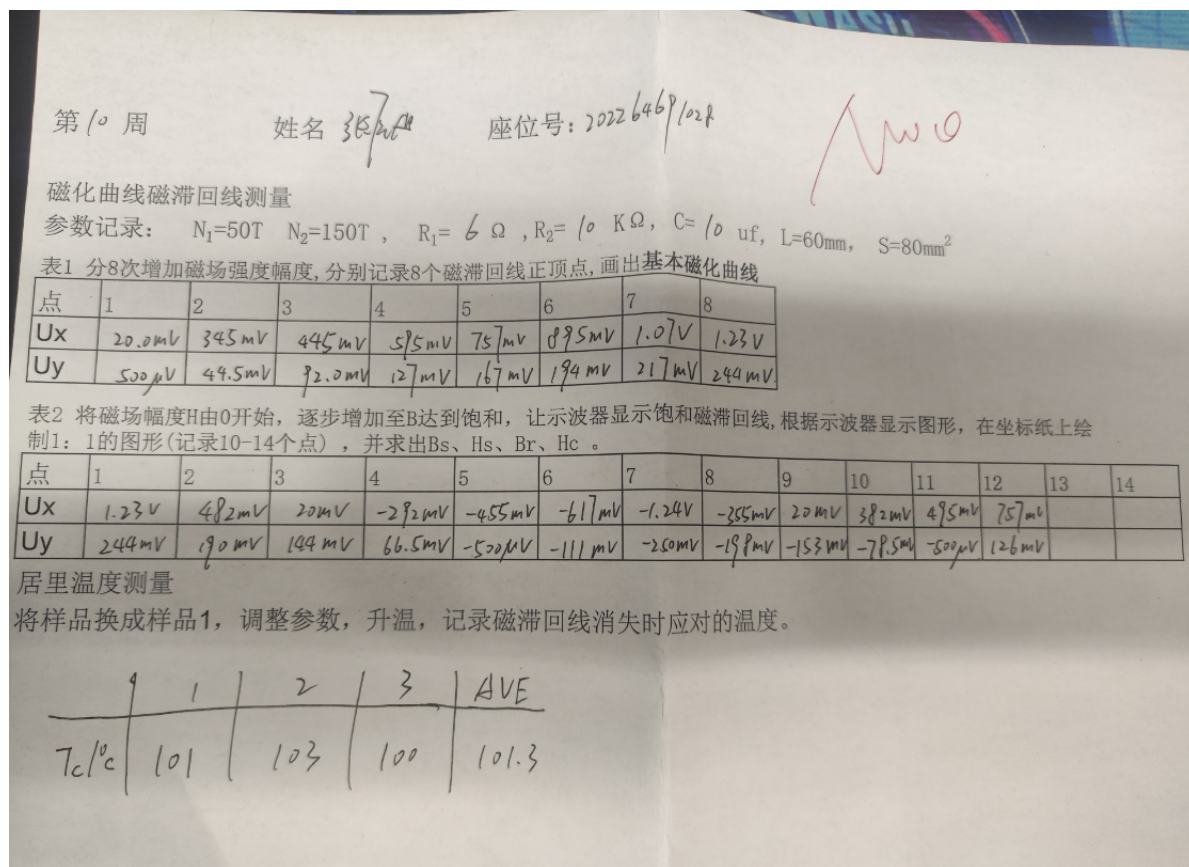 WASH
第10周 姓名 座位号: 202264691028
磁化曲线磁滞回线测量
参数记录: N₁=50T N₂=150T , R₁= 6 Ω ,R₂= 10 KΩ, C= 10 uf, L=60mm, S=80mm²
表1 分8次增加磁场强度幅度,分别记录8个磁滞回线正顶点,画出基本磁化曲线
点 1 2 3 4 5 6 7 8
Ux 20.0mV 345mV 445mV 595mV 757mV 895mV 1.07V 1.23V
Uy 500μV 44.5mV 92.0mV 127mV 167mV 194mV 217mV 244mV
表2 将磁场幅度H由0开始，逐步增加至B达到饱和，让示波器显示饱和磁滞回线,根据示波器显示图形，在坐标纸上绘
制1：1的图形(记录10-14个点) ，并求出Bs、Hs、Br、Hc 。
点 1 2 3 4 5 6 7 8 9 10 11 12 13 14
Ux 1.23V 482mV 20mV -292mV -455mV -617mV -1.24V -355mV 20mV 382mV 495mV 757mV
Uy 244mV 190mV 144mV 66.5mV -500μV -111mV -250mV -198mV -153mV -78.5mV -500μV 126mV
居里温度测量
将样品换成样品1，调整参数，升温，记录磁滞回线消失时应对的温度。
1 2 3 AVE
Tc/°C 101 103 100 101.3